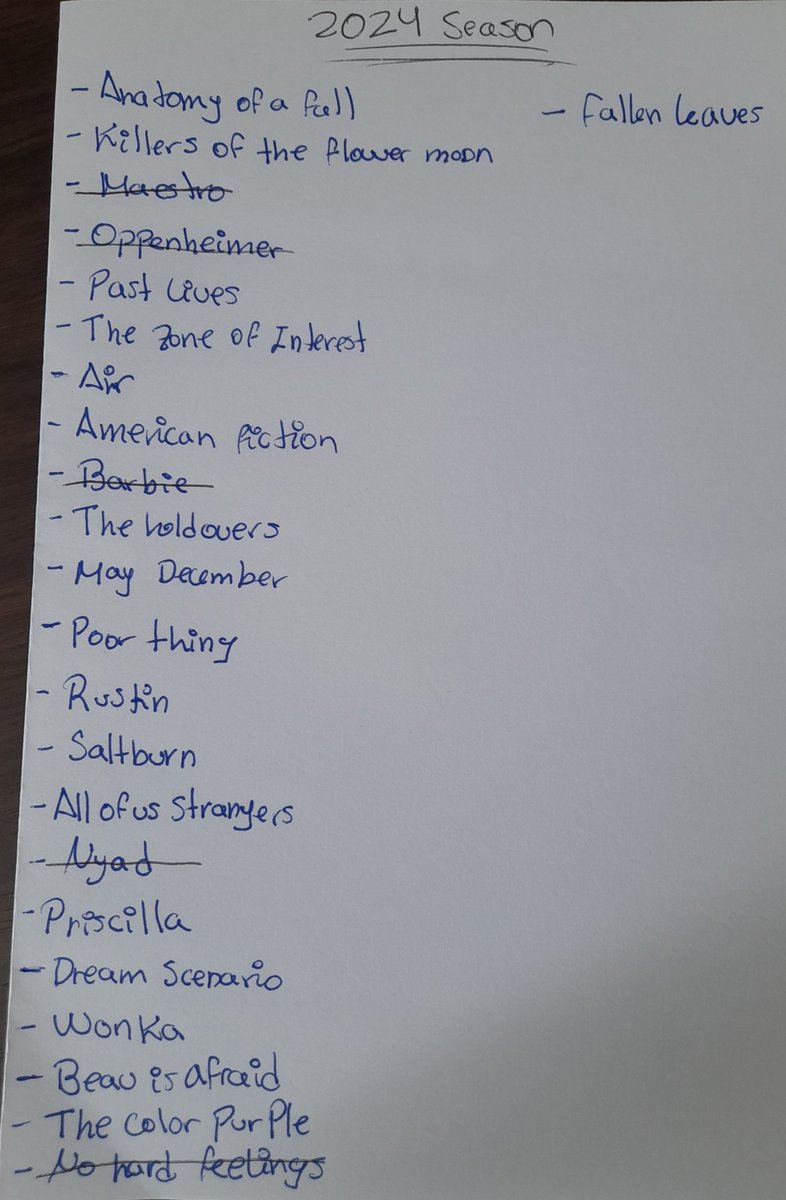 2024 Season
- Anatomy of a fall
- Killers of the flower moon
- Maestro
- Oppenheimer
- Past Lives
- The Zone of Interest
- Air
- American fiction
- Barbie
- The holdovers
- May December
- Poor thing
- Rustin
- Saltburn
- All of us Strangers
- Nyad
- Priscilla
- Dream Scenario
- Wonka
- Beau is afraid
- The color PurPle
- No hard feelings
- Fallen leaves